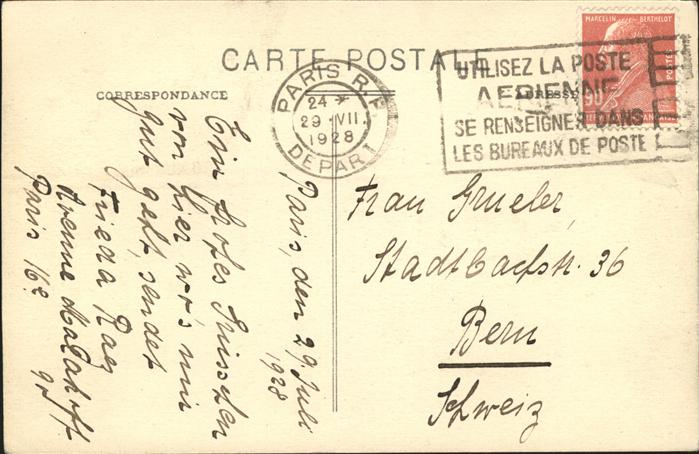 CARTE POSTALE
CORRESPONDANCE
ADRESSE
MARCELIN BERTHELOT
POSTES
PARIS R.P.
24
29 · VII.
1928
DEPART
UTILISEZ LA POSTE
AERIENNE
SE RENSEIGNER DANS
LES BUREAUX DE POSTE
Paris, den 29. Juli
1928
Ein
von hier wo's mir
gut geht, sendet
Frieda
Avenue Malakoff
Paris 16e
Frau Grueler,
Stadtbachstr. 36
Bern
Schweiz